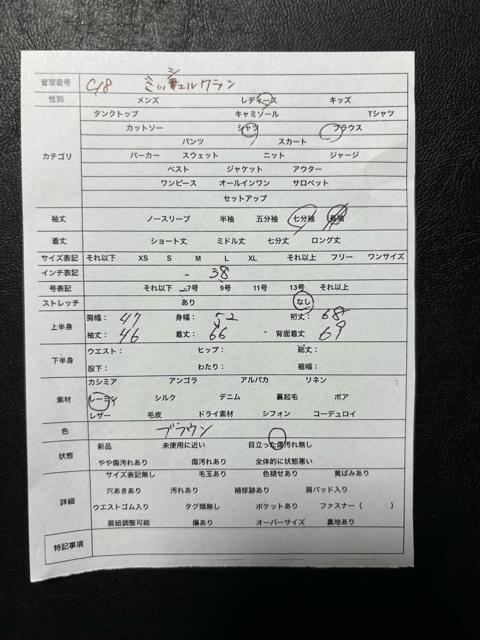 管理番号 C18 ミッシェルクラン
性別 メンズ レディース キッズ
タンクトップ キャミソール Tシャツ
カットソー シャツ ブラウス
パンツ スカート
カテゴリ パーカー スウェット ニット ジャージ
ベスト ジャケット アウター
ワンピース オールインワン サロペット
セットアップ
袖丈 ノースリーブ 半袖 五分袖 七分袖 長袖
着丈 ショート丈 ミドル丈 七分丈 ロング丈
サイズ表記 それ以下 XS S M L XL それ以上 フリー ワンサイズ
インチ表記 38
号表記 それ以下 7号 9号 11号 13号 それ以上
ストレッチ あり なし
上半身 肩幅：47 身幅：52 裄丈：68
袖丈：46 着丈：66 背面着丈：69
下半身 ウエスト： ヒップ： 総丈：
股下： わたり： 裾幅：
カシミア アンゴラ アルパカ リネン
素材 レーヨン シルク デニム 裏起毛 ボア
レザー 毛皮 ドライ素材 シフォン コーデュロイ
色 ブラウン
状態 新品 未使用に近い 目立った傷汚れ無し
やや傷汚れあり 傷汚れあり 全体的に状態悪い
サイズ表記無し 毛玉あり 色褪せあり 黄ばみあり
詳細 穴あきあり 汚れあり 補修跡あり 肩パッド入り
ウエストゴム入り タグ類無し ポケットあり ファスナー（ ）
肩紐調整可能 傷あり オーバーサイズ 裏地あり
特記事項